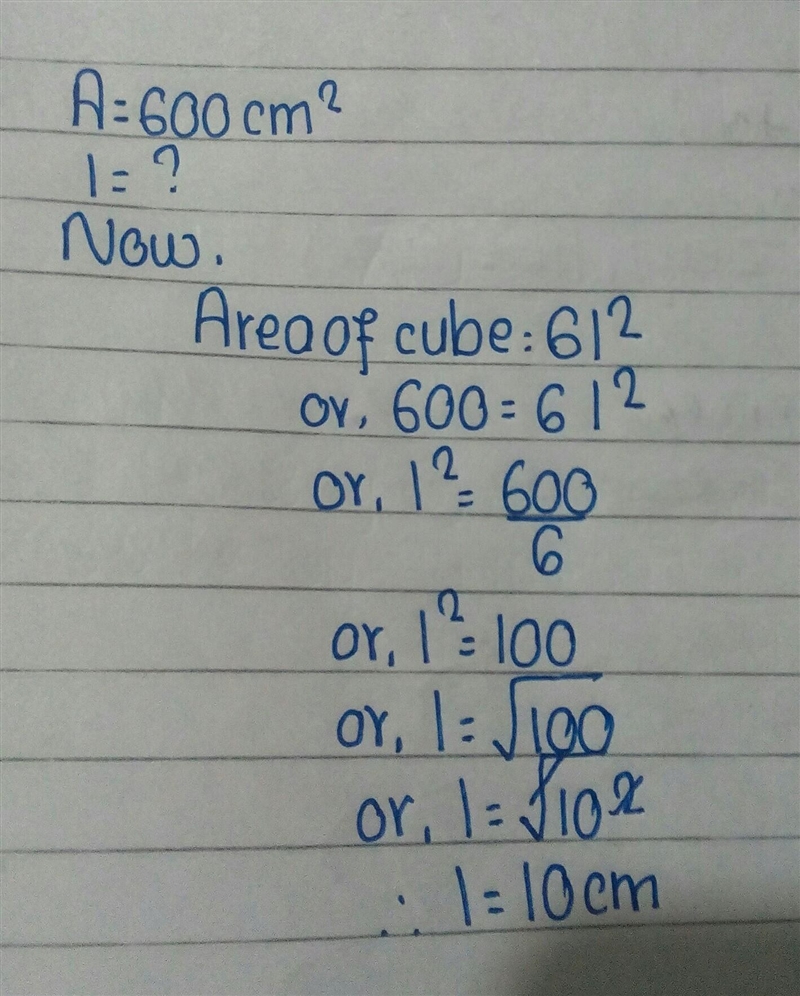 A = 600 cm²
l = ?
Now.
Area of cube = 6l²
or, 600 = 6l²
or, l² = 600/6
or, l² = 100
or, l = √100
or, l = √10²
∴ l = 10 cm